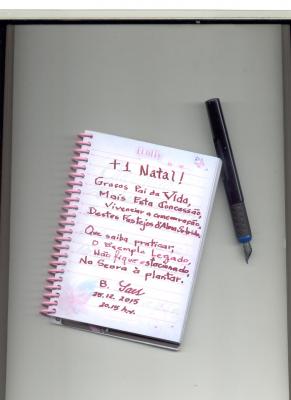 +1 Natal!
Graças Pai da Vida,
Mais Esta Concessão,
Vivenciar a comemoração,
Destes Festejos d'Alma Sofrida.
Que saiba praticar,
O Exemplo Legado,
Não fique estacionado,
Na Seara à plantar.
B.
25.12.2015
20.15 hr.